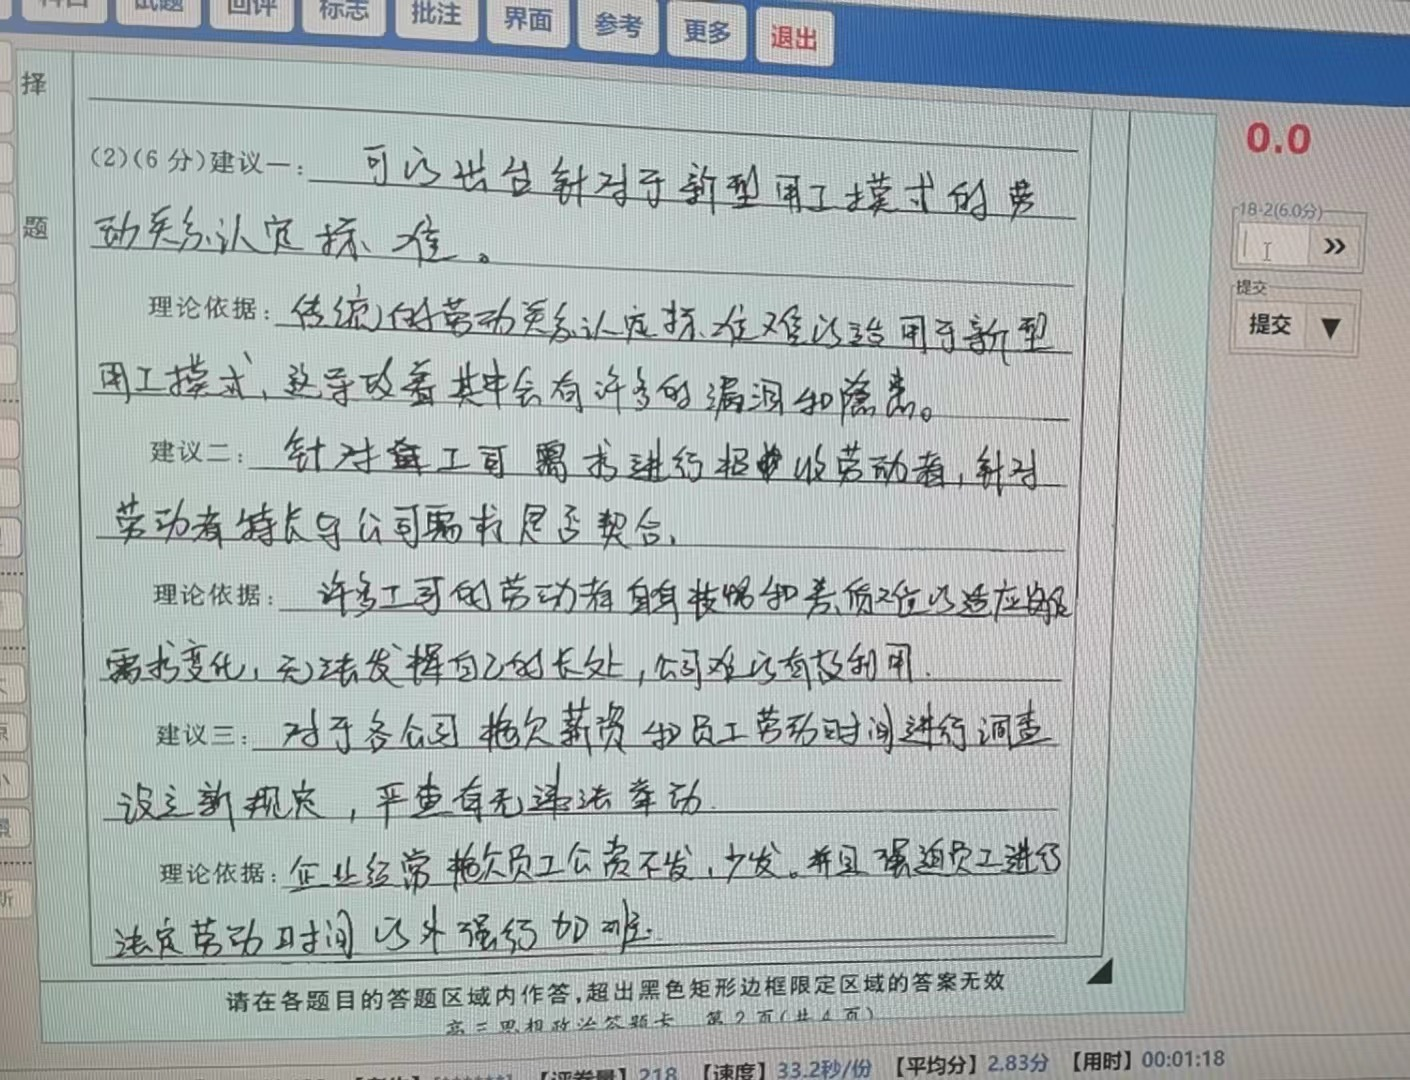 科目 试题 回评 标志 批注 界面 参考 更多 退出
择
题
0.0
18-2(6.0分)
»
提交
提交 ▼
(2)(6分)建议一: 可以出台针对于新型用工模式的劳
动关系认定标准。
理论依据: 传统的劳动关系认定标准难以适用于新型
用工模式,这导致着其中会有许多的漏洞和隐患。
建议二: 针对 工司需求进行招收劳动者,针对
劳动者特长与公司需求是否契合,
理论依据: 许多工司的劳动者自身技能和素质难以适应
需求变化,无法发挥自己的长处,公司难以有效利用.
建议三: 对于各公司拖欠薪资和员工劳动时间进行调查
设立新规定,严查有无违法举动.
理论依据: 企业经常拖欠员工公资不发,少发。并且强迫员工进行
法定劳动时间以外强行加班.
请在各题目的答题区域内作答,超出黑色矩形边框限定区域的答案无效
高三思想政治答题卡 第2页(共4页)
【评卷量】218 【速度】33.2秒/份 【平均分】2.83分 【用时】00:01:18